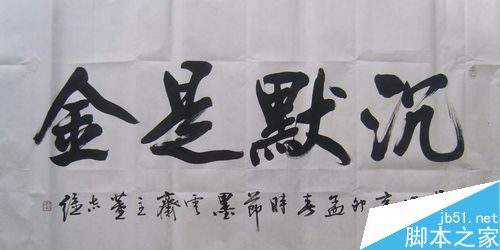 沉默是金
卯孟春時節墨雲齋主
jb51.net
脚本之家